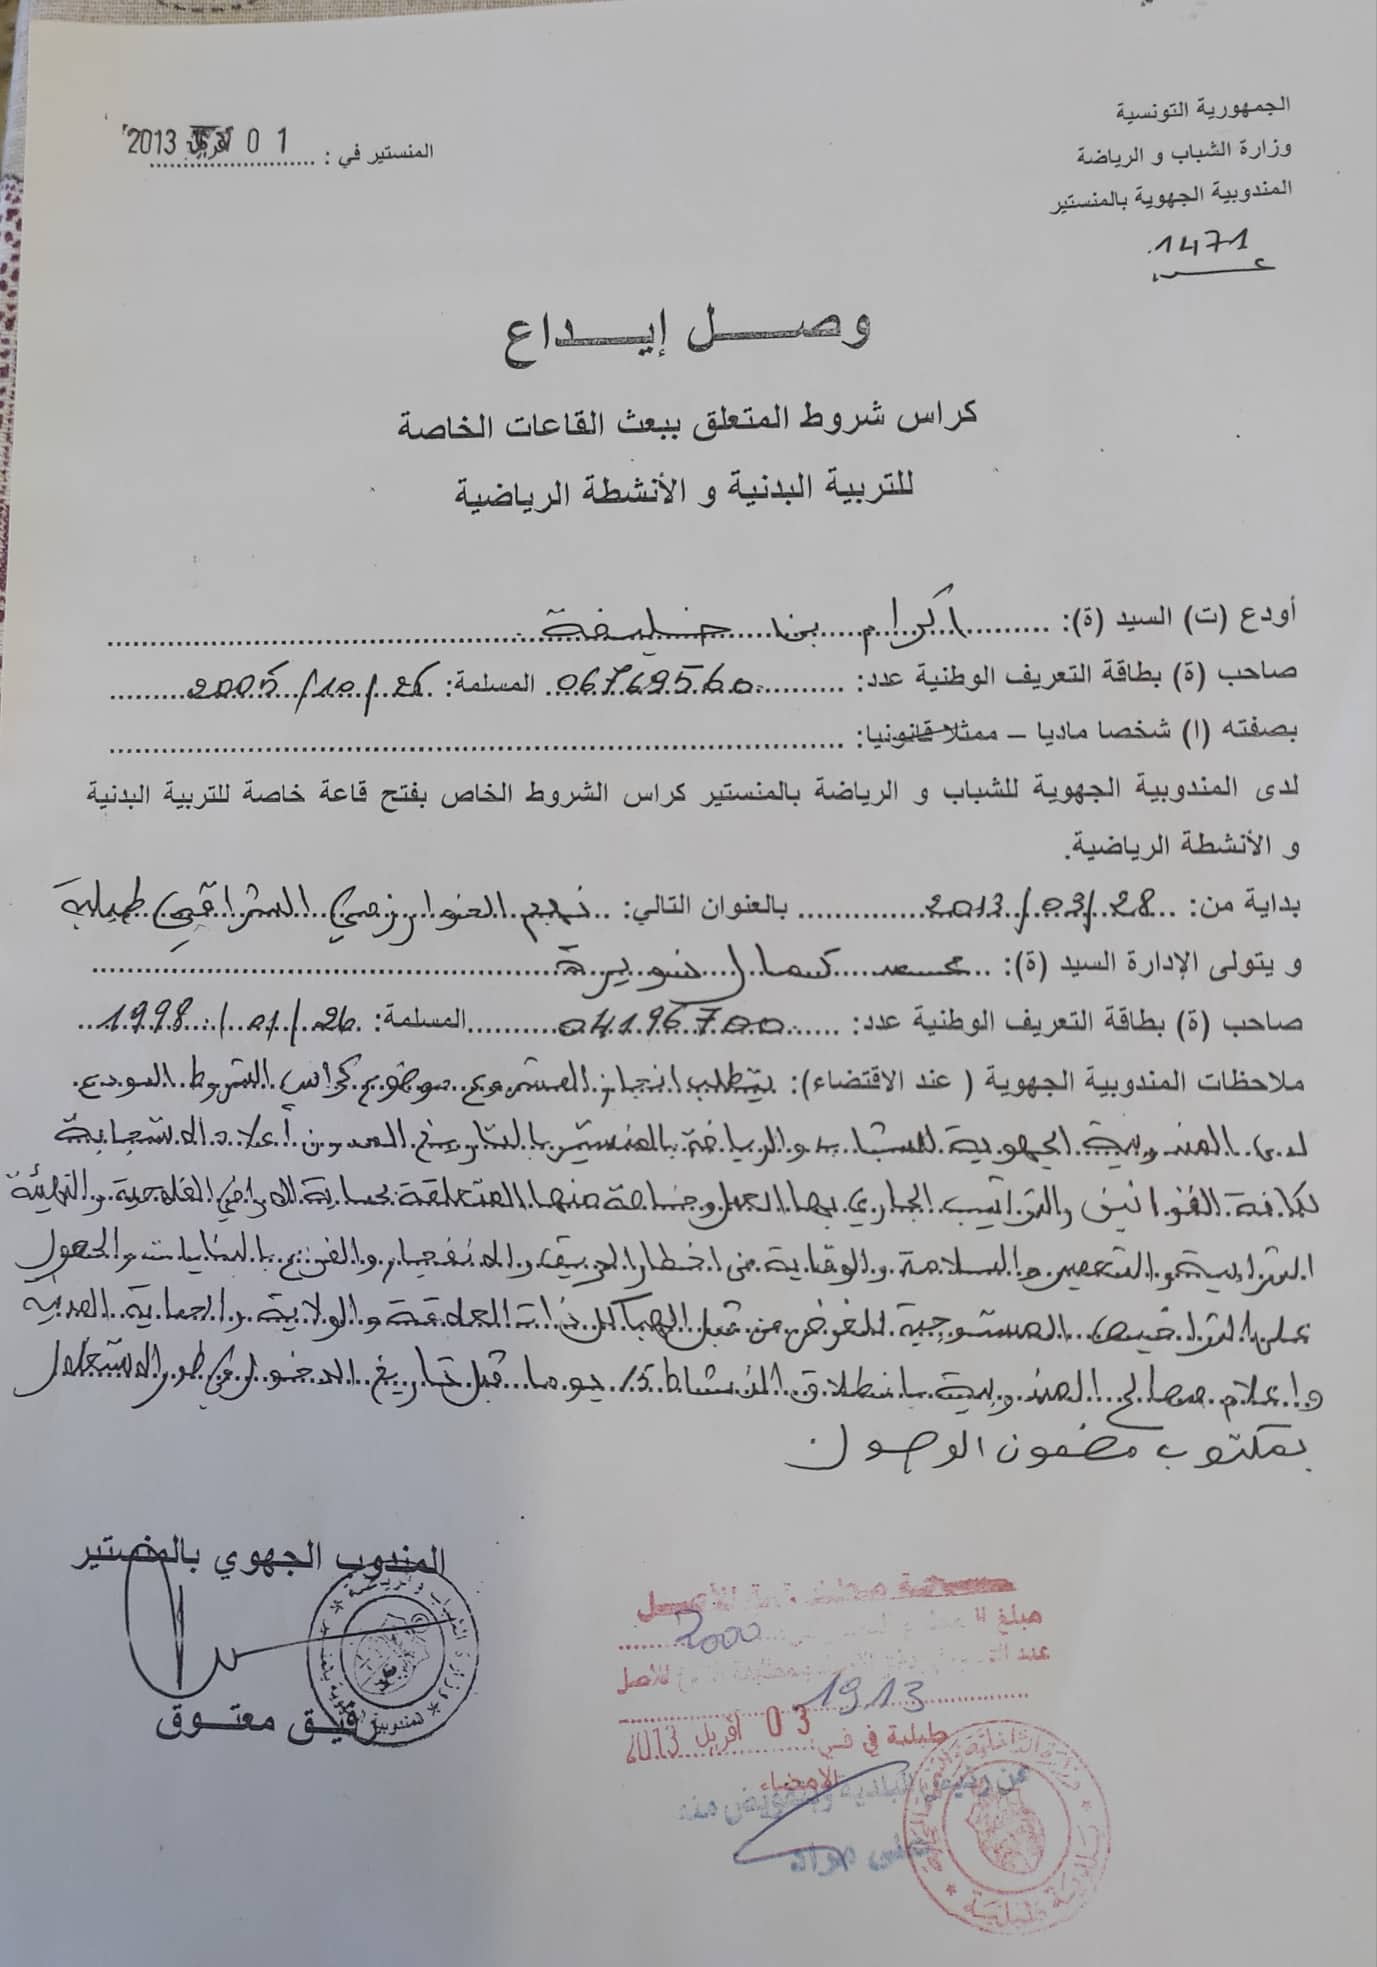 الجمهورية التونسية
وزارة الشباب و الرياضة
المندوبية الجهوية بالمنستير
1471
المنستير في : 01 أفريل 2013
وصل إيداع
كراس شروط المتعلق ببعث القاعات الخاصة
للتربية البدنية و الأنشطة الرياضية
أودع (ت) السيد (ة): اكرام بن خليفة
صاحب (ة) بطاقة التعريف الوطنية عدد: 06769560 المسلمة: 26/10/2005
بصفته (ا) شخصا ماديا – ممثلا قانونيا:
لدى المندوبية الجهوية للشباب و الرياضة بالمنستير كراس الشروط الخاص بفتح قاعة خاصة للتربية البدنية
و الأنشطة الرياضية.
بداية من: 28/03/2013 بالعنوان التالي: نهج الخوارزمي الشراقي طبلبة
و يتولى الإدارة السيد (ة): محمد كمال نويرة
صاحب (ة) بطاقة التعريف الوطنية عدد: 04196700 المسلمة: 26/01/1998
ملاحظات المندوبية الجهوية ( عند الاقتضاء): يتطلب انجاز المشروع موضوع كراس الشروط المودع
لدى المندوبية الجهوية للشباب والرياضة بالمنستير بالتاريخ المدون أعلاه الاستجابة
لكافة القوانين والتراتيب الجاري بها العمل وخاصة منها المتعلقة بحماية الاراضي الفلاحية والتهيئة
الترابية والتعمير والسلامة والوقاية من اخطار الحريق والانفجار والفزع بالبنايات والحصول
على التراخيص المستوجبة للغرض من قبل الهياكل ذات العلاقة والولاية والحماية المدنية
واعلام مصالح المندوبية بانطلاق النشاط 15 يوما قبل تاريخ الدخول في طور الاستغلال
بمكتوب مضمون الوصول
المندوب الجهوي بالمنستير
رفيق معتوق
مبلغ 2000
عدد
للأصل
1913
طبلبة في 03 أفريل 2013
الامضاء
عن رئيس البلدية وبتفويض منه
بلدية طبلبة